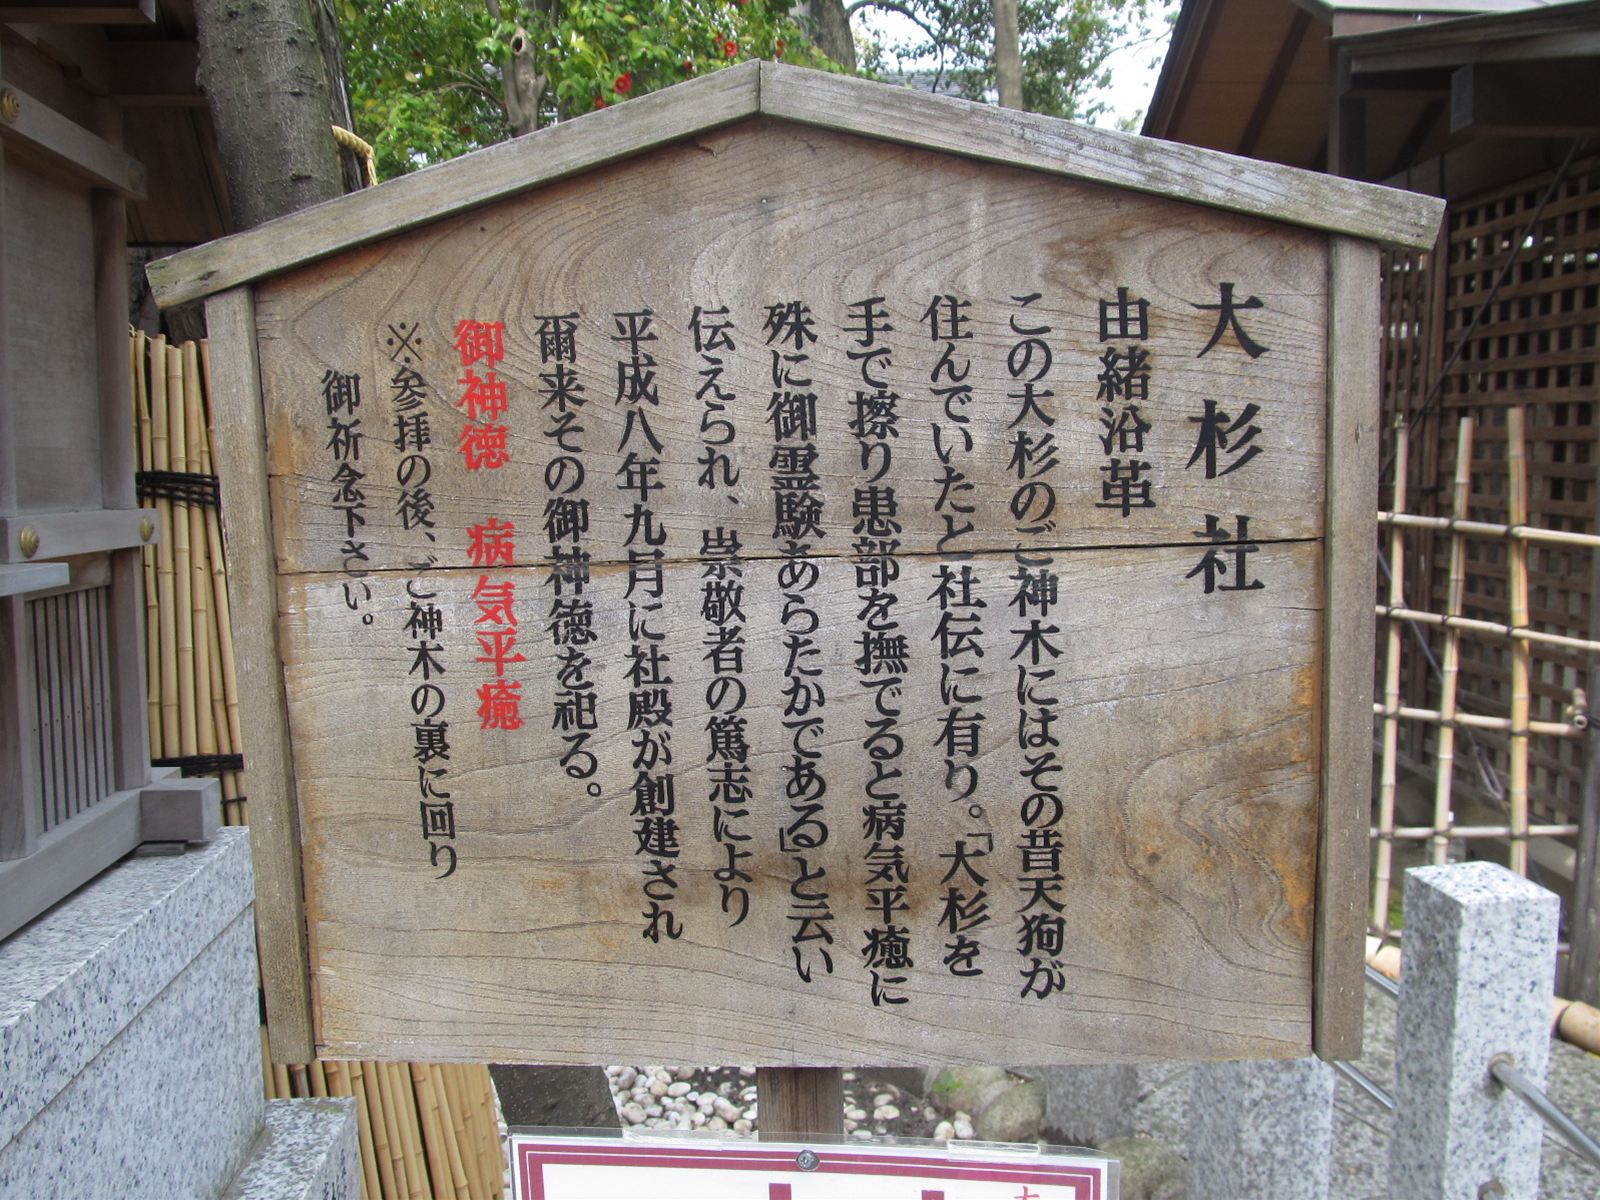 大杉社
由緒沿革
この大杉のご神木にはその昔天狗が
住んでいたと社伝に有り。「大杉を
手で擦り患部を撫でると病気平癒に
殊に御霊験あらたかである」と云い
伝えられ、崇敬者の篤志により
平成八年九月に社殿が創建され
爾来その御神徳を祀る。
御神徳　病気平癒
※参拝の後、ご神木の裏に回り
御祈念下さい。